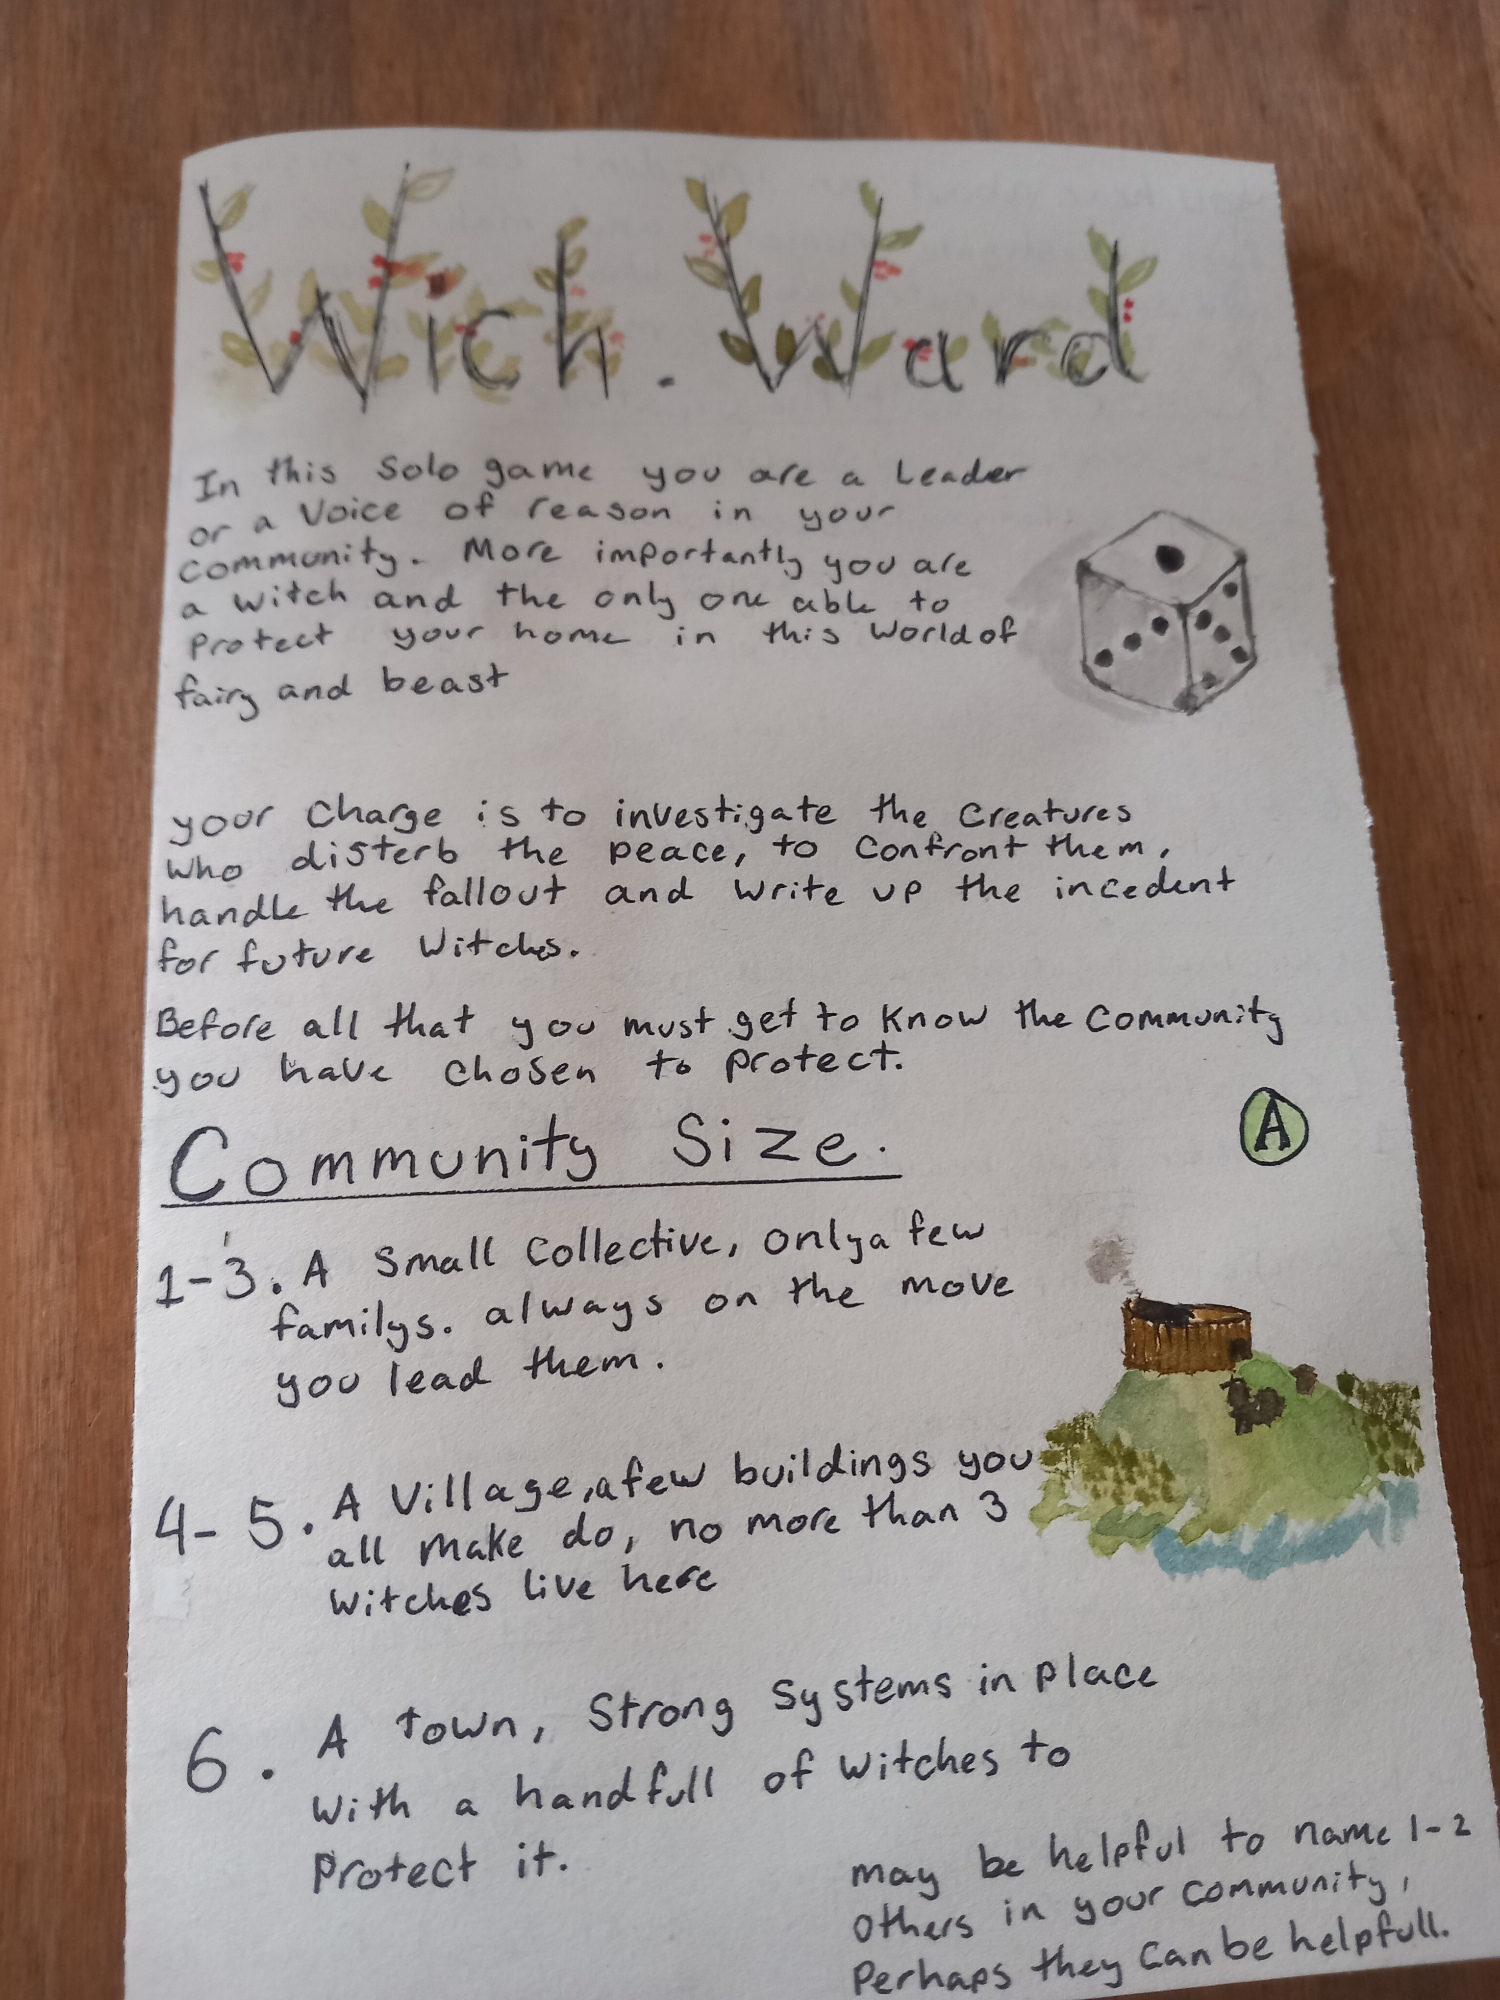 Wich. Ward
In this Solo game you are a Leader
or a Voice of reason in your
community. More importantly you are
a witch and the only one able to
Protect your home in this World of
fairy and beast
your Charge is to investigate the Creatures
who disterb the peace, to Confront them,
handle the fallout and write up the incedent
for future Witches.
Before all that you must get to Know the Community
you have chosen to Protect.
Community Size.
A
1-3. A Small Collective, only a few
familys. always on the move
you lead them.
4-5. A Village, a few buildings you
all make do, no more than 3
Witches live here
6. A town, Strong Systems in Place
With a handfull of Witches to
Protect it.
may be helpful to name 1-2
Others in your Community,
Perhaps they Can be helpfull.